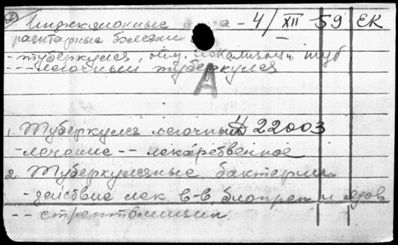 Инфекционные - 4/XII 59 ЕК
разитарные болезни
-туберкулез, туб
-- легочный туберкулез
A
1. Туберкулез легочный 22003
-лечение -- лекарственное
2. Туберкулезные бактерии
-действие лек. в-в, и ядов
-- стрептомицин